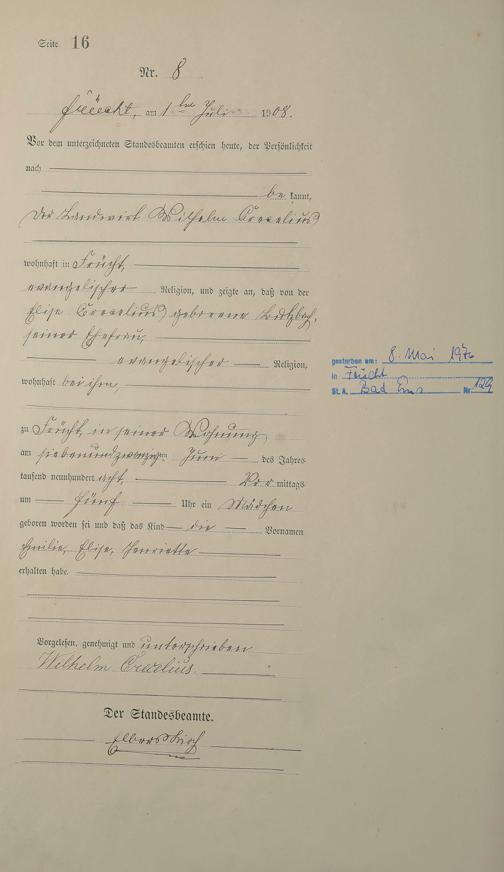 Seite 16
Nr. 8
Früecht, am 1ten Juli 1908.
Vor dem unterzeichneten Standesbeamten erschien heute, der Persönlichkeit
nach
be kannt,
der Landwirt Wilhelm Crecelius
wohnhaft in Frücht,
evangelischer Religion, und zeigte an, daß von der
Elise Crecelius geborene
seiner Ehefrau,
evangelischer Religion,
wohnhaft bei ihm,
zu Frücht, in seiner Wohnung
am siebenundzwanzigsten Juni des Jahres
tausend neunhundert acht Vor mittags
um fünf Uhr ein Mädchen
geboren worden sei und daß das Kind die Vornamen
Emilie, Elise, Henriette
erhalten habe.
Vorgelesen, genehmigt und unterschrieben
Wilhelm Crecelius
Der Standesbeamte.
gestorben am: 8. Mai
in Frücht
St. A. Bad Ems Nr.